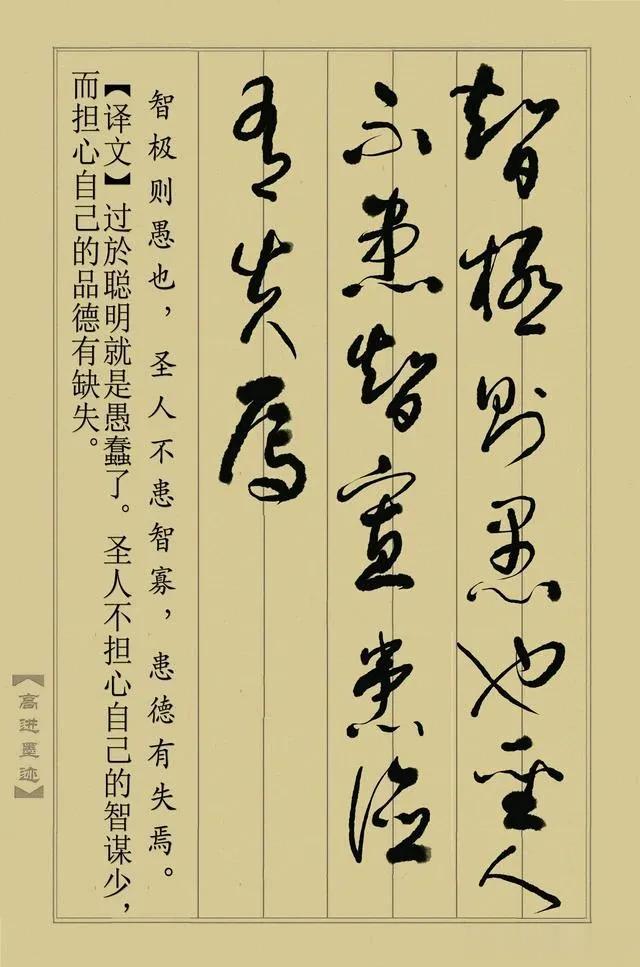 智极则愚也圣人
不患智寡患德
有失焉
智极则愚也，圣人不患智寡，患德有失焉。
【译文】过於聪明就是愚蠢了。圣人不担心自己的智谋少，
而担心自己的品德有缺失。
【高进墨迹】